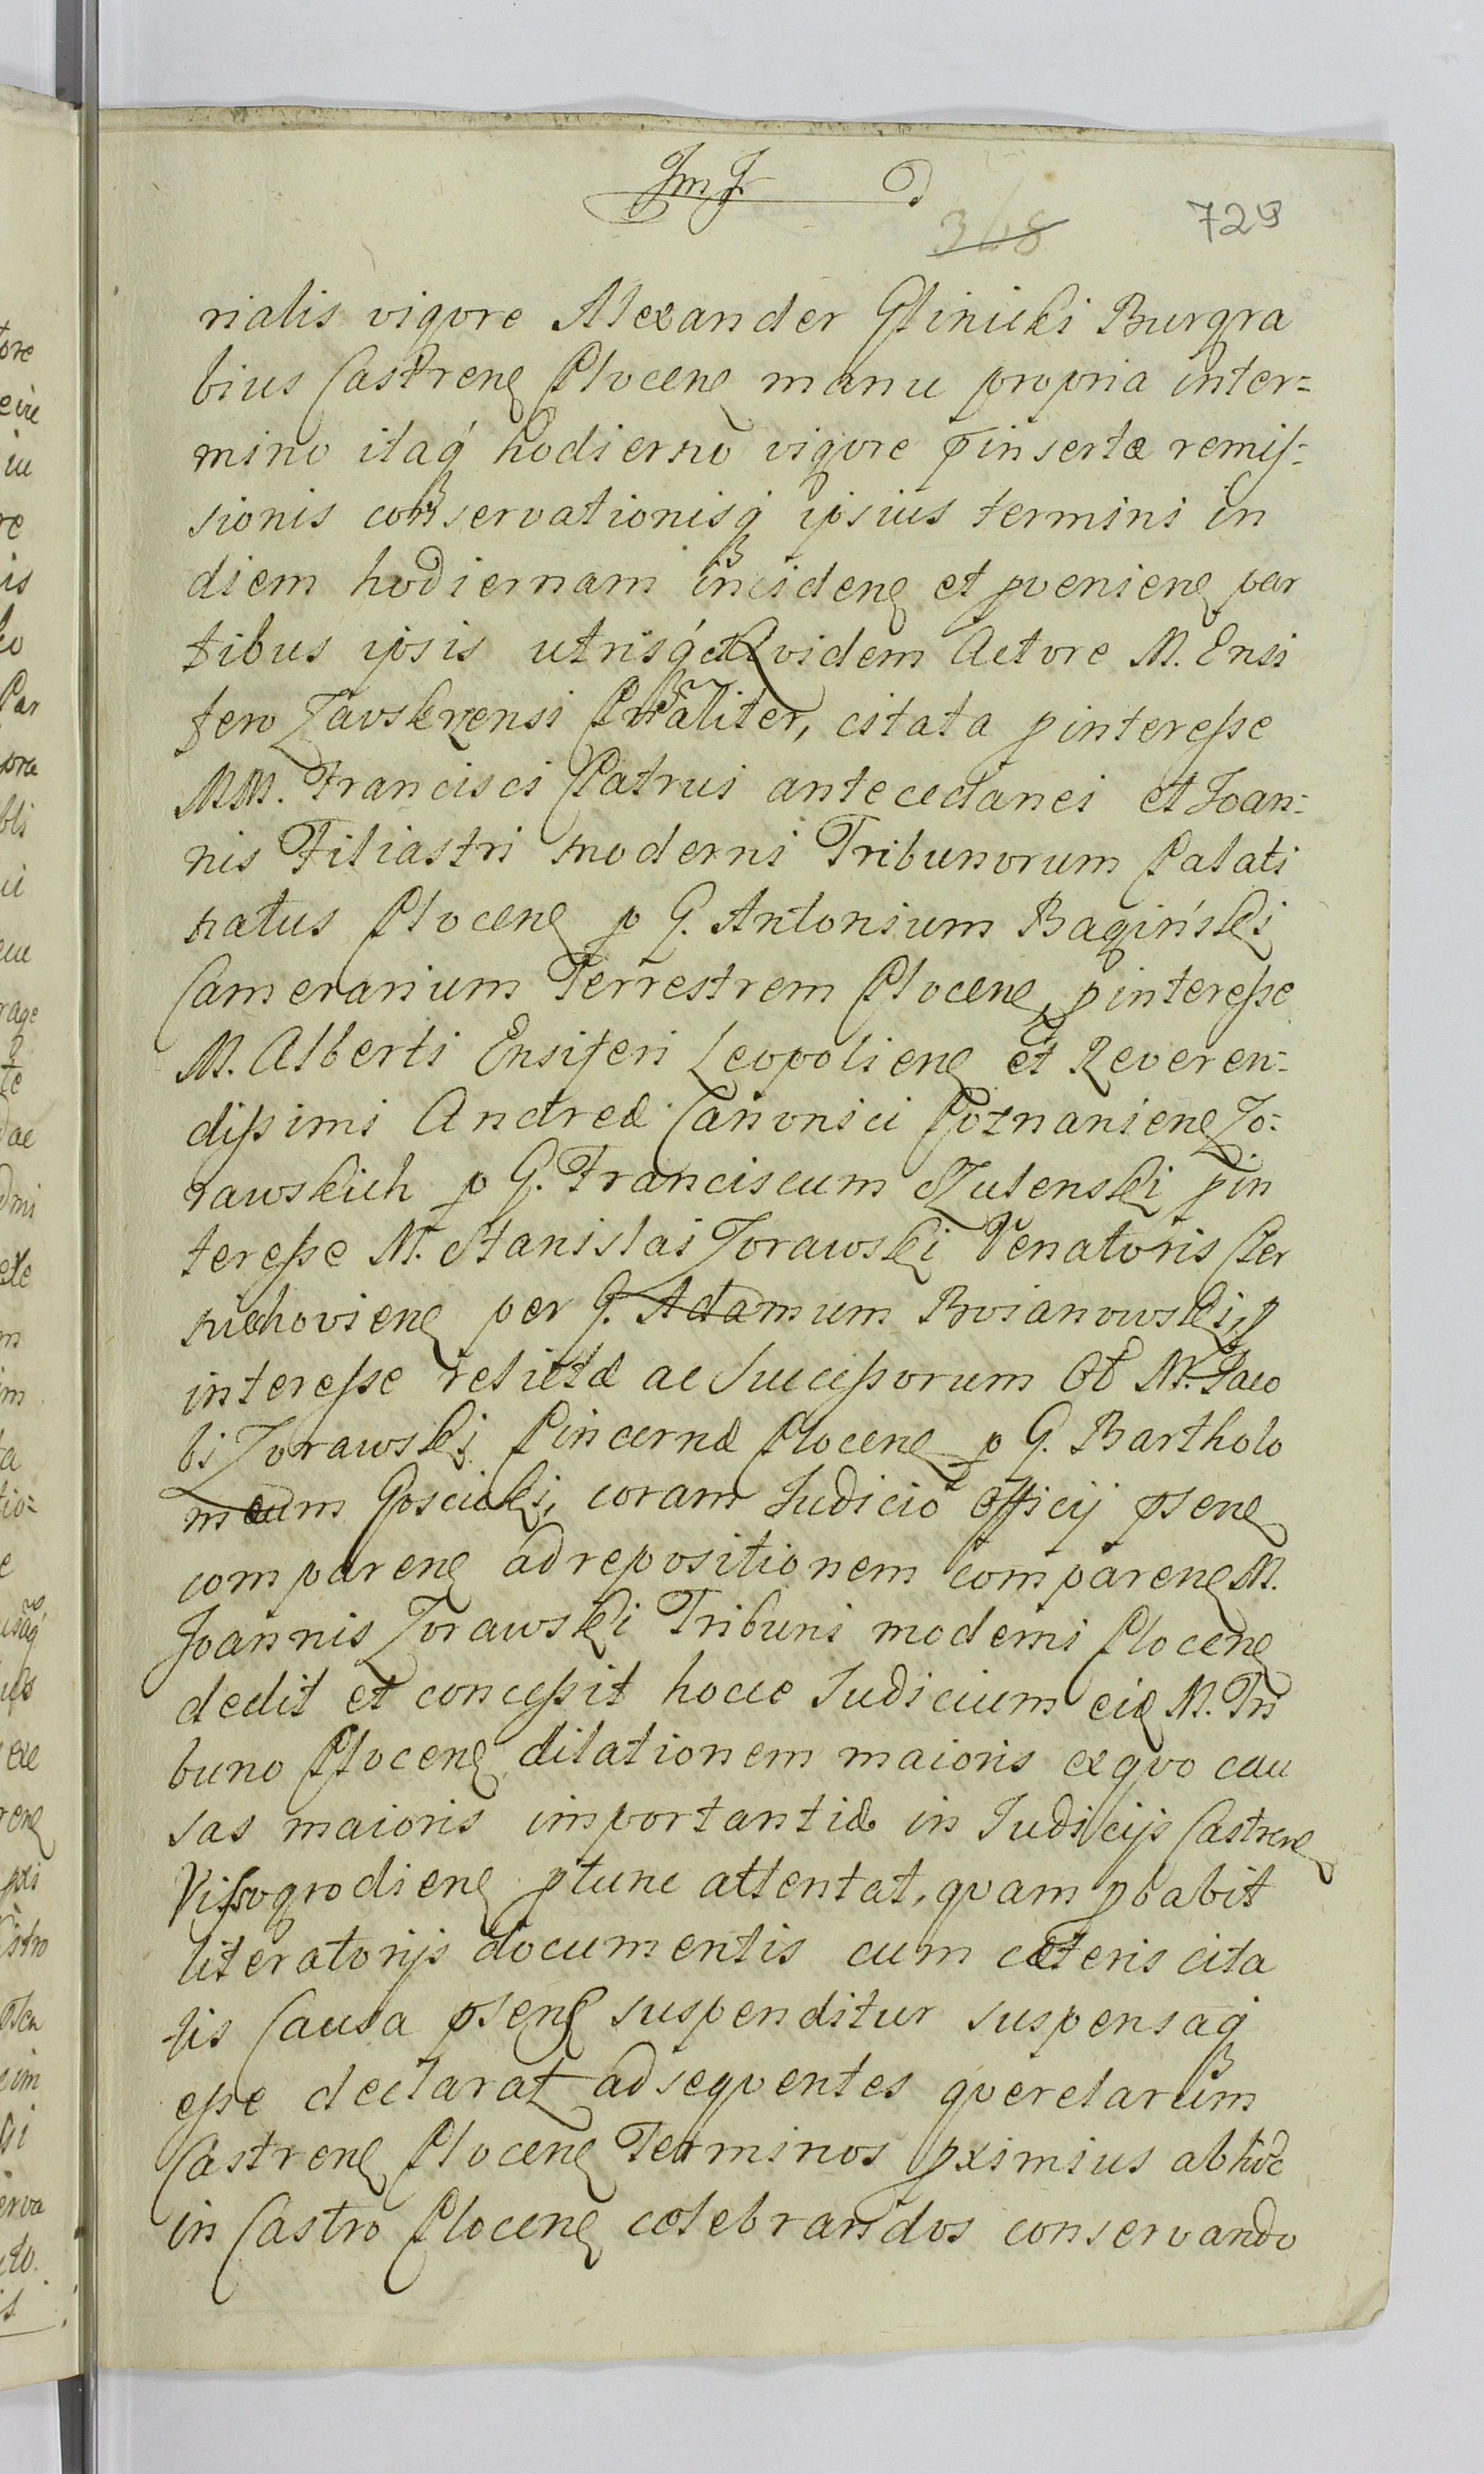 Im J
368 729
rialis vigore Alexander Glinicki Burgra
bius Castren Plocen manu propria inter=
mino itaq hodierno vigore pinsertæ remis=
sionis conservationisq ipsius termini in
diem hodiernam inciden et pvenien par
tibus ipsis utrisq et qvidem Actore M. Ensi
fero Zavskrzensi Prsaliter, citata p interesse
MM. Francisci Patrui antecedanei et Joan=
nis Filiastri moderni Tribunorum Palati
natus Plocen p G. Antonium Bagiński
Camerarium Terrestrem Plocen, p interesse
M. Alberti Ensiferi Leopolien et Reveren=
dissimi Andreæ Canonici Poznanien Zo=
rawskich p G. Franciscum Szulenski p in
teresse M. Stanislai Zorawski Venatoris Czer
niehovien per G. Adamum Boianowski, p
interesse relictæ ac Successorum Ol M. Jaco
bi Zorawski Pincernæ Plocen p G. Bartholo
mæum Gościcki, coram Judicio Officij psen
comparen ad repositionem comparen M.
Joannis Zorawski Tribuni moderni Plocen
dedit et concessit hocce Judicium eid M. Tri
buno Plocen dilationem maioris ex quo cau
sas maioris importantiæ in Judicijs Castren
Vissogrodien ptunc attentat, quam pbabit
literatorijs documentis cum cæteris cita
tis Causa psens suspenditur suspensaq
esse declarat ad seqventes qverelarum
Castren Plocen Terminos pximius ab hoc
in Castro Plocen celebrandos conservando